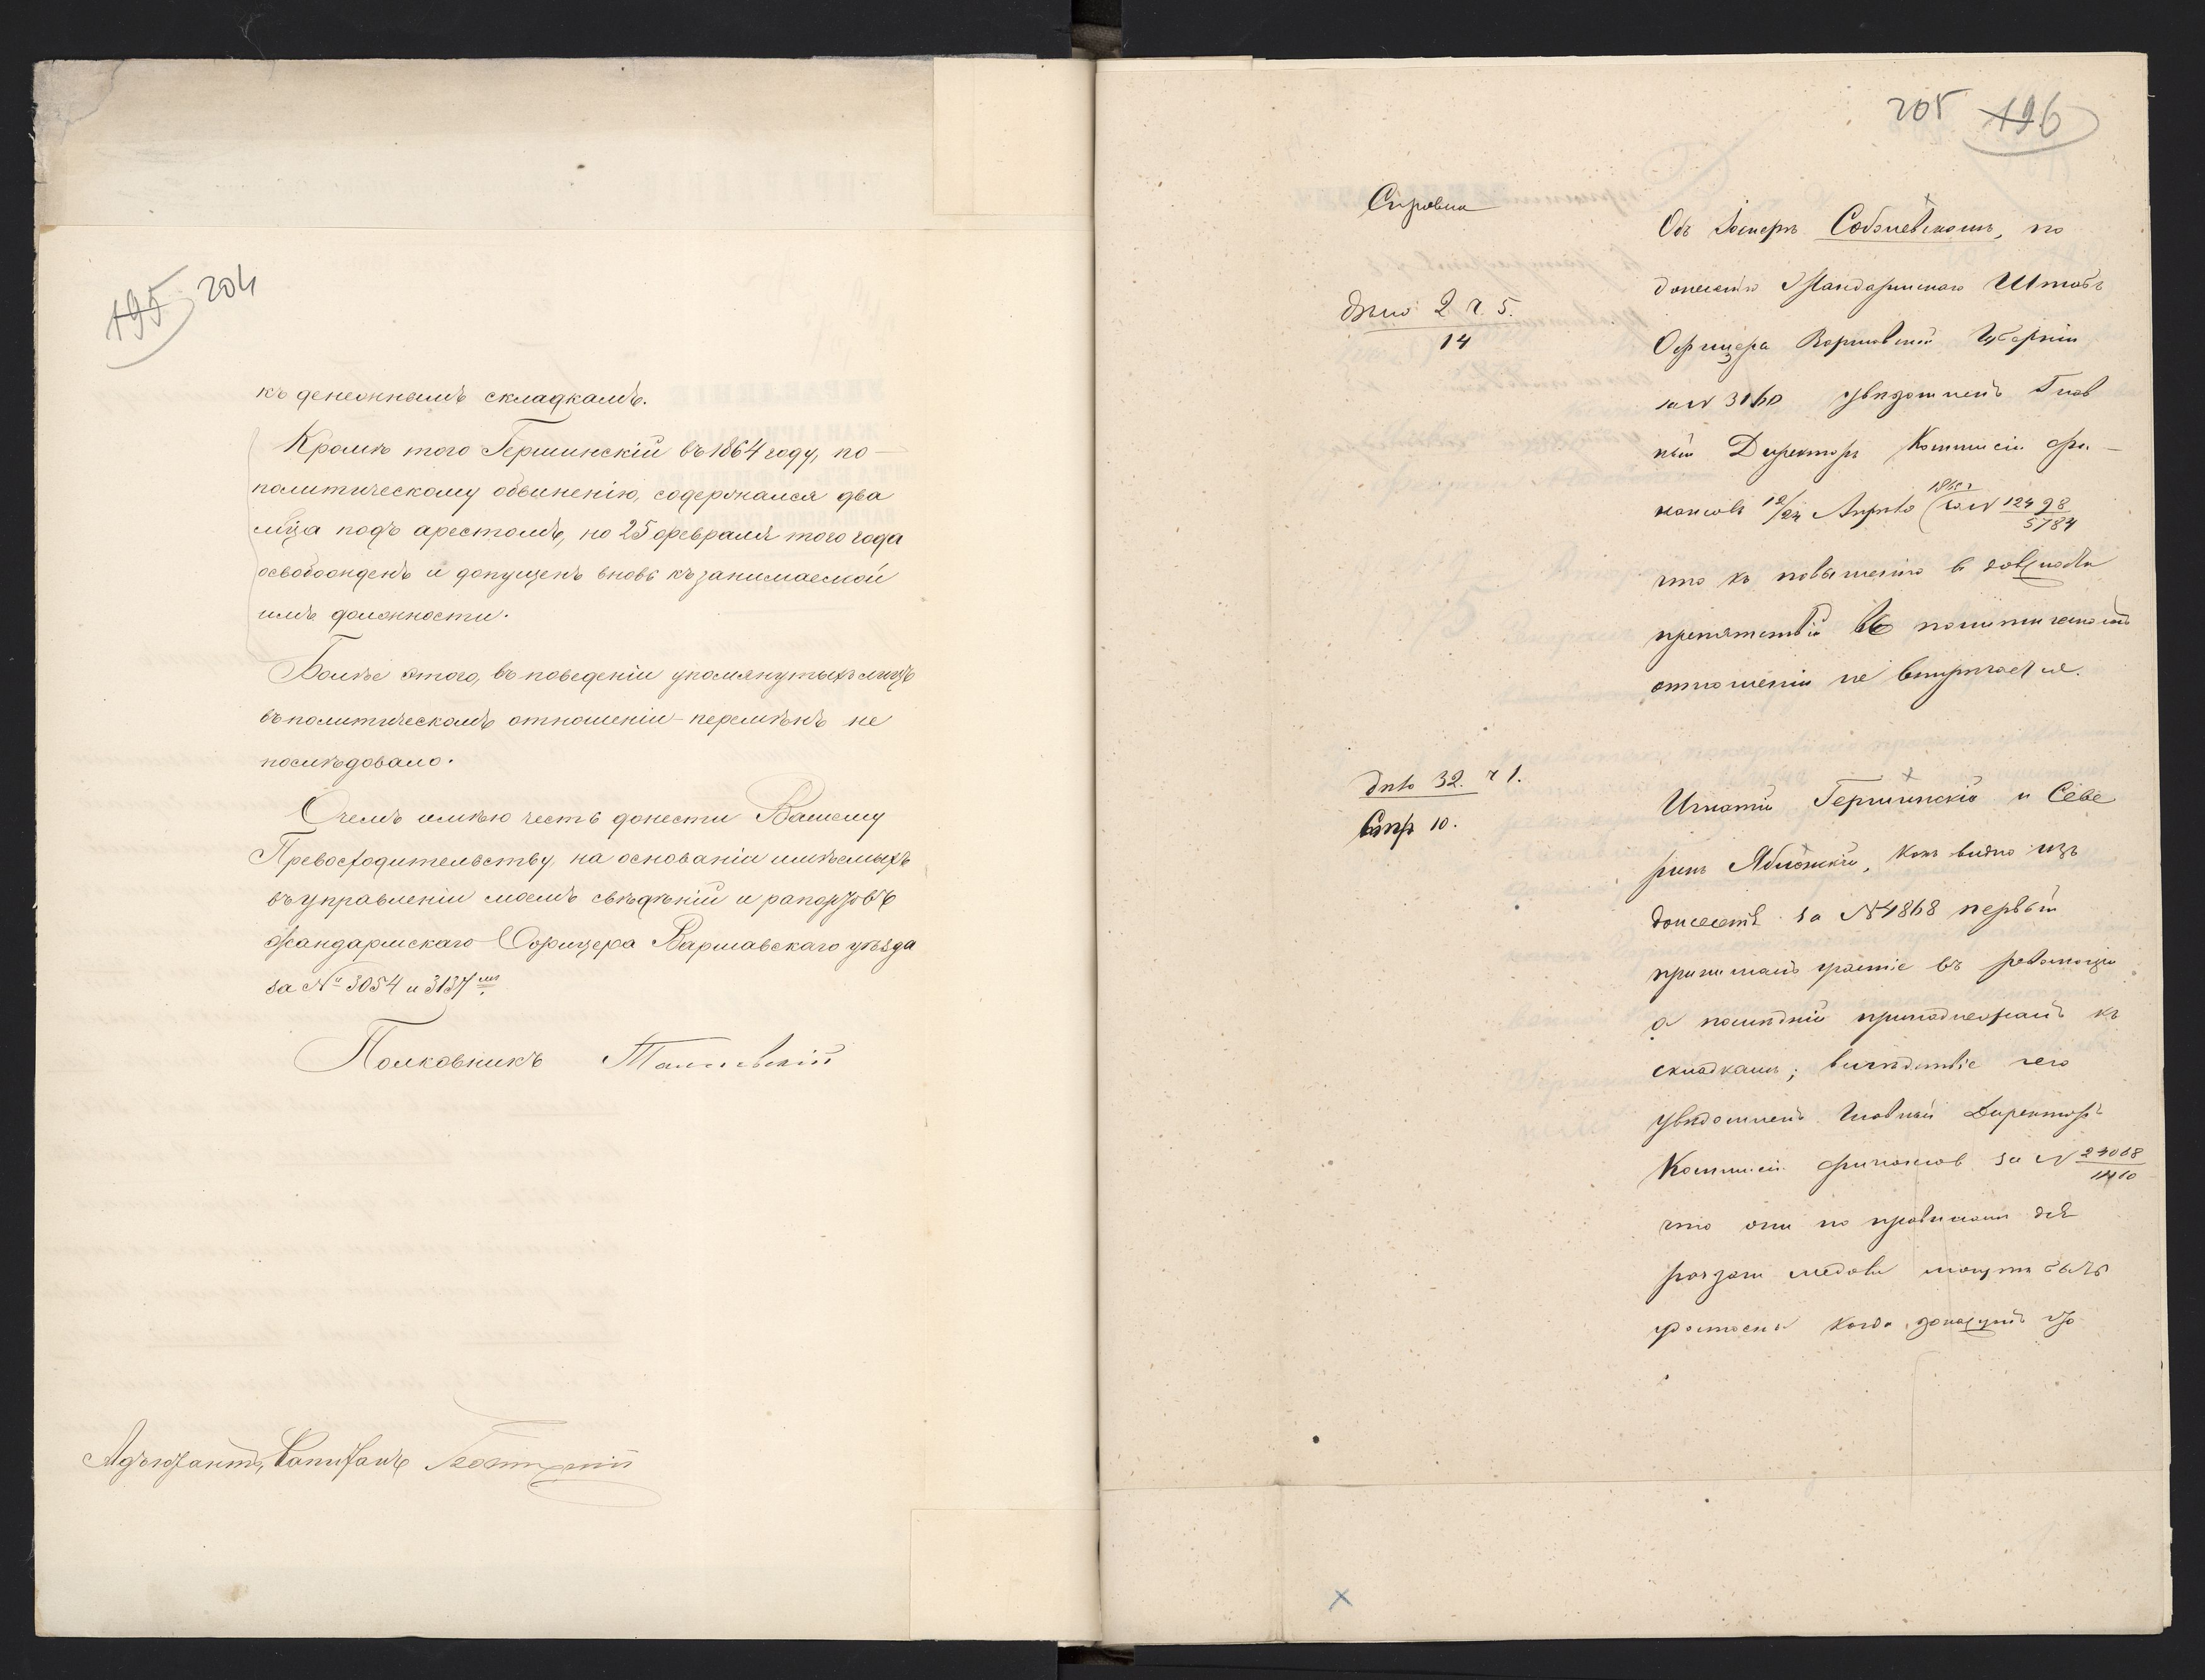 195 204
къ денежнымъ складкамъ.
Кромѣ того Гершинскій въ 1864 году, по
политическому обвиненію, содержался два
мѣца подъ арестомъ, но 25 февраля того года
освобожденъ и допущенъ вновь къ занимаемой
имъ должности.
Болѣе этого, въ поведеніи упомянутыхъ лицъ
въ политическомъ отношеніи перемѣнъ не
послѣдовало.
О чемъ имѣю честь донести Вашему
Превосходительству, на основаніи имѣемыхъ
въ управленіи моемъ свѣдѣній и рапортовъ
Жандармскаго Офицера Варшавскаго уѣзда
за № 3054 и 3137мъ
Полковникъ
Адъютантъ, Капитанъ
205 196
Справка
дѣло 2 ч. 5.
14
Объ Іосифѣ Соболевскомъ, по
донесенію Жандармскаго Штабъ
Офицера Варшавской Губерніи
за № 3160 увѣдомленъ Глав
ный Директоръ Коммисіи Фи-
нансовъ 12/24 Апрѣля 1865 г за № 12498
5784
что къ повышенію въ должности
препятствій въ политическомъ
отношеніи не встрѣчается.
дѣло 32. ч 1.
стр 10.
Игнатій Гершинскій и Севе
ринъ Яблонскій, какъ видно изъ
донесенія за № 4868 первый
принималъ участіе въ революціи
а послѣдній принадлежалъ къ
складкамъ; вслѣдствіе чего
увѣдомленъ Главный Директоръ
Коммисіи Финансовъ за №
что они по правиламъ для
могутъ быть
когда